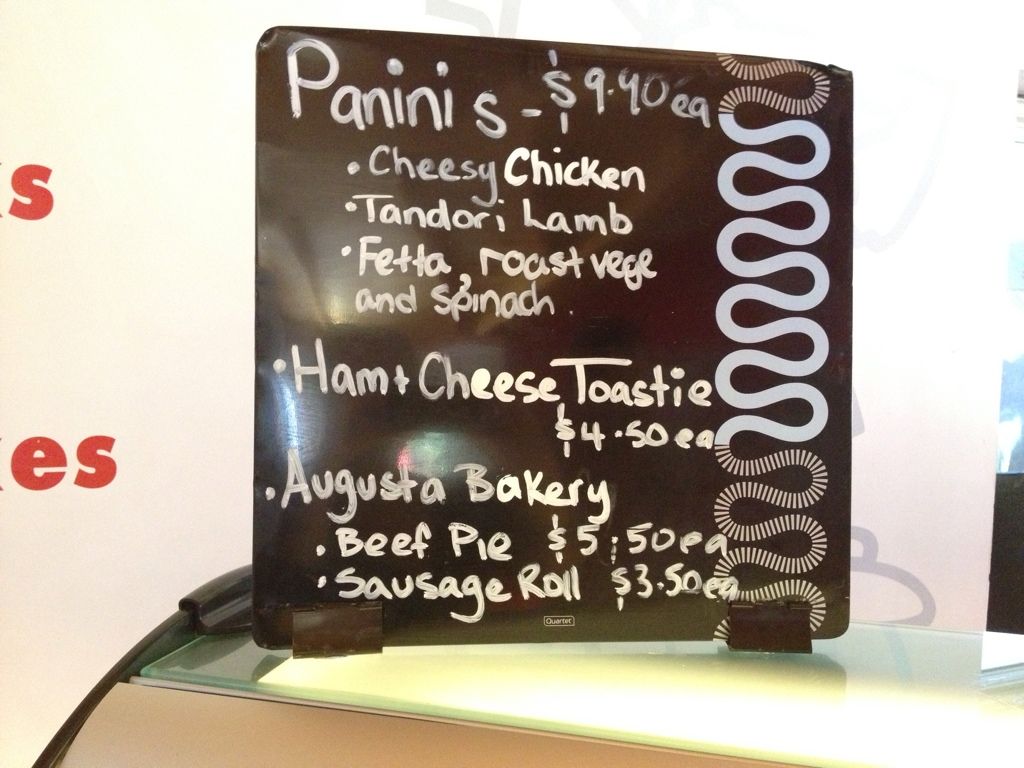 Paninis - $9.40 ea
• Cheesy Chicken
• Tandori Lamb
• Fetta, roast vege
and spinach.
• Ham + Cheese Toastie
$4.50 ea
• Augusta Bakery
• Beef Pie $5.50 ea
• Sausage Roll $3.50 ea
Quartet
es